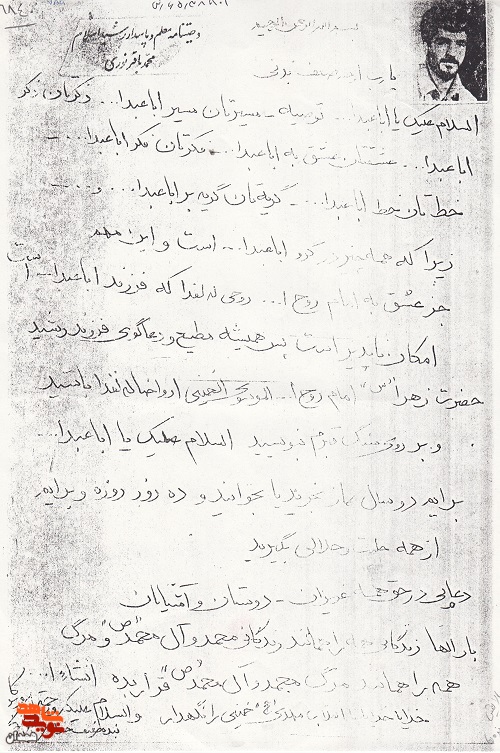 بسم الله الرحمن الرحیم
وصیتنامه معلم و پاسدار شهید اسلام
محمد باقر نوری
یا رب
السلام علیک یا اباعبدا... توصیه - مسیرتان مسیر اباعبدا... ذکرتان ذکر
اباعبدا... عشقتان عشق به اباعبدا... فکرتان فکر اباعبدا... -
خطتان خط اباعبدا... - گریه‌تان گریه بر اباعبدا... و...
زیرا که همه چیز در گرو اباعبدا... است و این مهم
جز عشق به امام روح ا... روحی له الفدا که فرزند اباعبدا... است
امکان ناپذیر است پس همیشه مطیع و دعاگوی فرزند رشید
حضرت زهرا (س) امام روح ا... الموسوی الخمینی ارواحنا له الفدا باشید
و بر روی سنگ قبرم بنویسید السلام علیک یا اباعبدا...
برایم دو سال نماز بخرید یا بخوانید و ده روز روزه و برایم
از همه حلیت و حلالی بگیرید
دعایی در حق همه عزیزان - دوستان و آشنایان
بارالها زندگانی همه را همانند زندگانی محمد و آل محمد (ص) و مرگ
همه را همانند مرگ محمد و آل محمد (ص) قرار بده انشاءا...
خدایا خدایا تا انقلاب مهدی خمینی را نگهدار والسلام علیکم